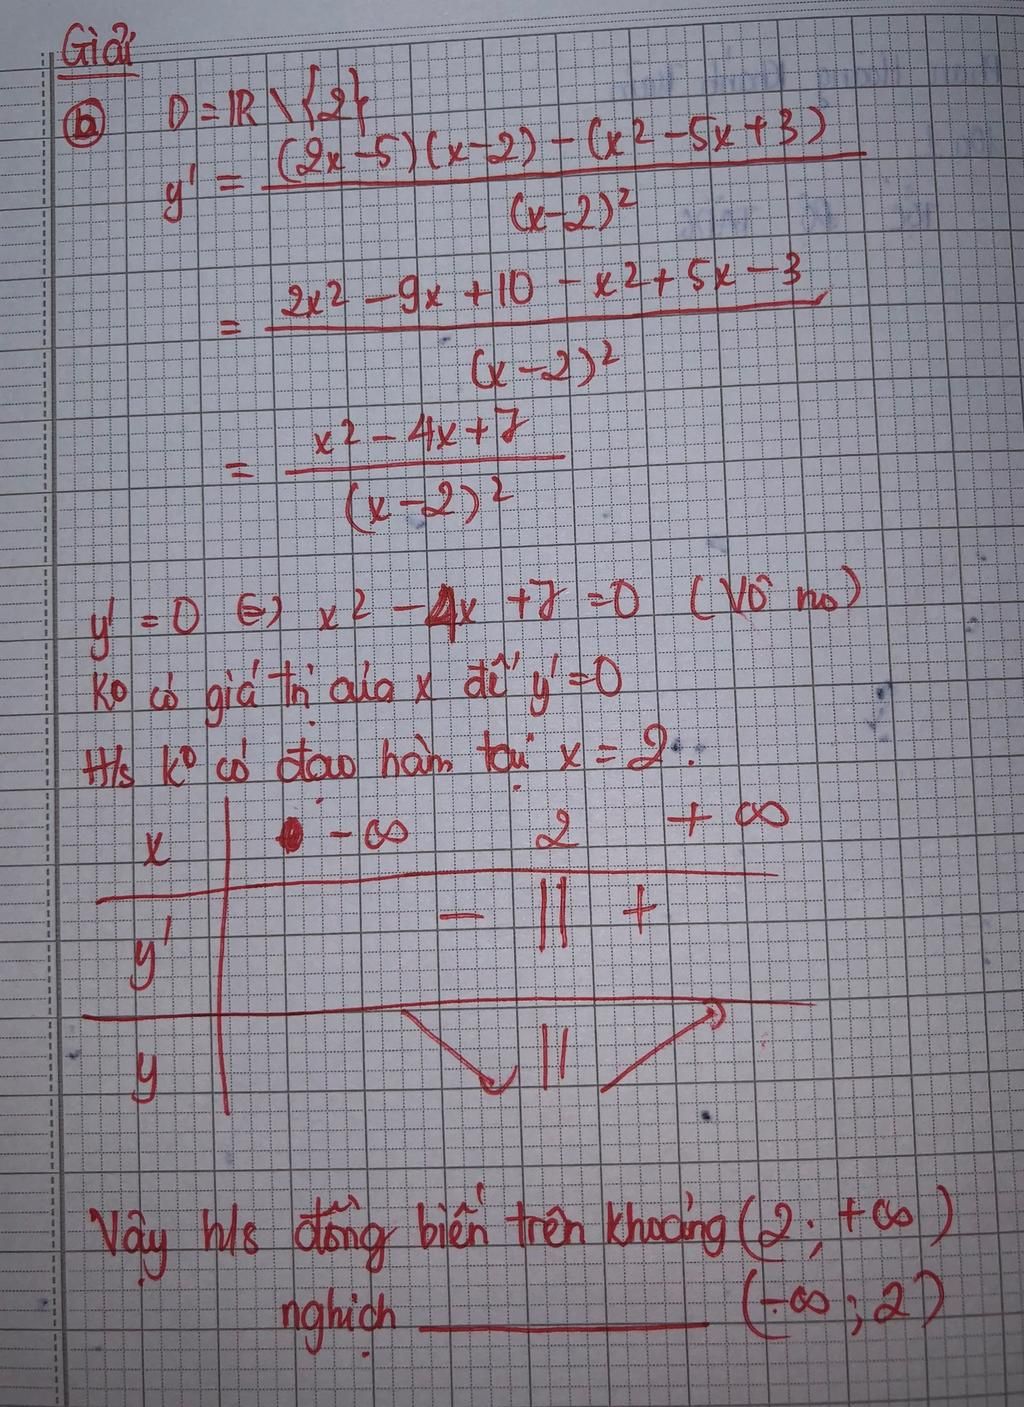 Giải
b) D = ℝ \ {2}
y' = ((2x-5)(x-2) - (x2 - 5x + 3)) / (x-2)²
= (2x2 - 9x + 10 - x2 + 5x - 3) / (x-2)²
= (x2 - 4x + 7) / (x-2)²
y' = 0 ⇔ x2 - 4x + 7 = 0 (Vô no)
Ko có giá trị của x để y' = 0
H/s ko có đạo hàm tại x = 2.
x -∞ 2 + ∞
y' - || +
y ↘ || ↗
Vậy h/s đồng biến trên khoảng (2; +∞)
nghịch ______ (-∞; 2)